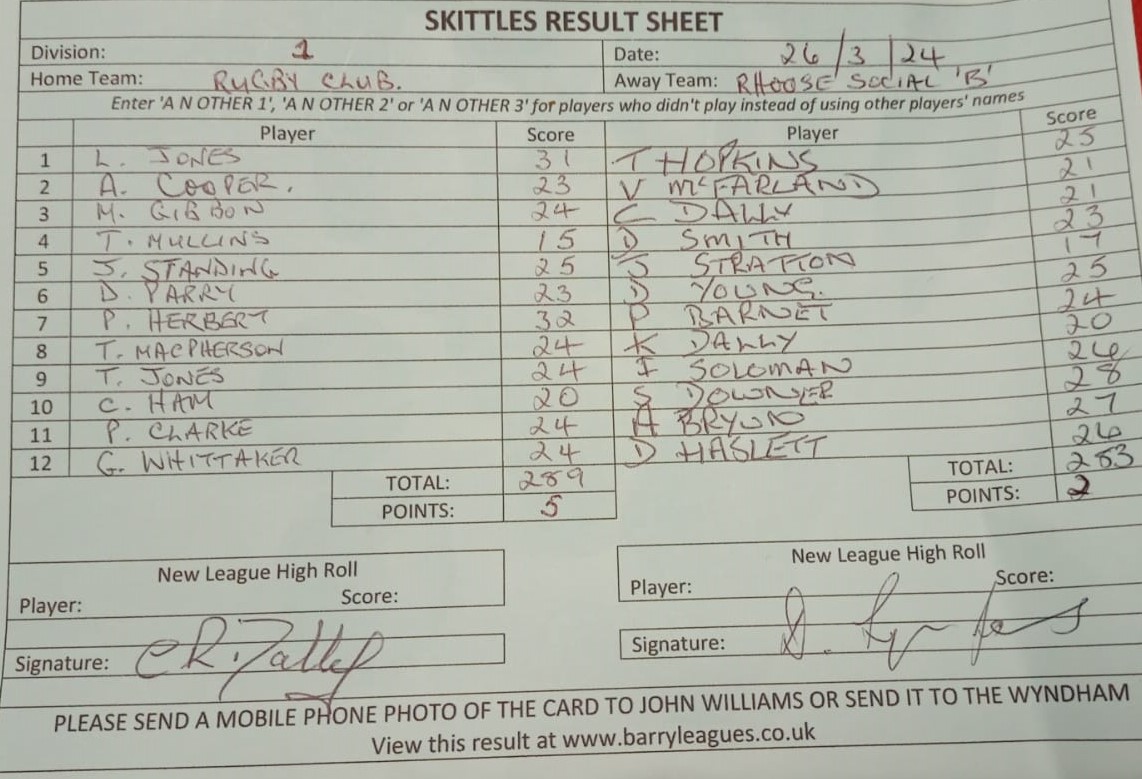 SKITTLES RESULT SHEET
Division: 1 Date: 26/3/24
Home Team: RUGBY CLUB. Away Team: RHOOSE SOCIAL 'B'
Enter 'A N OTHER 1', 'A N OTHER 2' or 'A N OTHER 3' for players who didn't play instead of using other players' names
Player Score Player Score
1 L. JONES 31 T HOPKINS 25
2 A. COOPER. 23 V McFARLAND 21
3 M. GIBBON 24 C DALLY 21
4 T. MULLINS 15 D SMITH 23
5 J. STANDING 25 J STRATTON 17
6 D. PARRY 23 D YOUNG. 25
7 P. HERBERT 32 P BARNET 24
8 T. MACPHERSON 24 K DALLY 20
9 T. JONES 24 I SOLOMAN 26
10 C. HAM 20 S DOWNER 28
11 P. CLARKE 24 A BRYON 27
12 G. WHITTAKER 24 D HASLETT 26
TOTAL: 289 TOTAL: 283
POINTS: 5 POINTS: 2
New League High Roll New League High Roll
Player: Score: Player: Score:
Signature: Signature:
PLEASE SEND A MOBILE PHONE PHOTO OF THE CARD TO JOHN WILLIAMS OR SEND IT TO THE WYNDHAM
View this result at www.barryleagues.co.uk